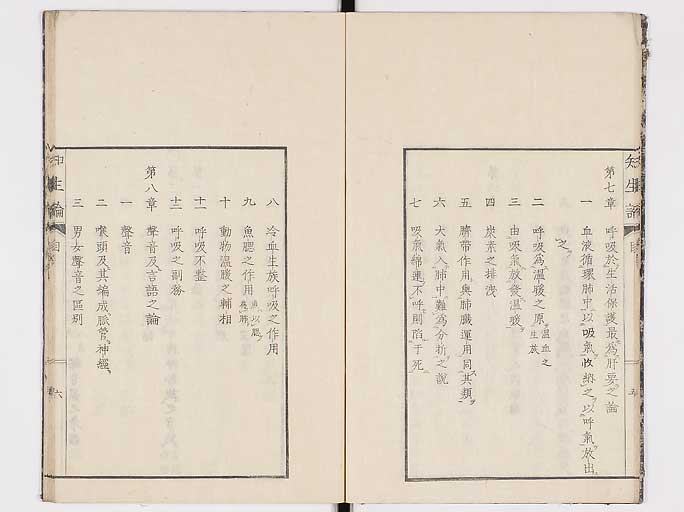 知生論
目
五
第七章 呼吸於生活保護最爲肝要之論
一 血液循環肺中以吸氣收納之以呼氣放出
之
二 呼吸爲溫暖之原 溫血之生族
三 由吸氣放發溫暖
四 炭素之排洩
五 臍帶作用與肺臟運用同其類
六 大氣入肺中難爲分析之說
七 吸氣綿連不呼則陷于死
八 冷血生族呼吸之作用
九 魚腮之作用
十 動物溫暖之輔相
十一 呼吸不整
十二 呼吸之副務
第八章 聲音及言語之論
一 聲音
二 喉頭及其編成脈管神經
三 男女聲音之區別
知生論
目
六